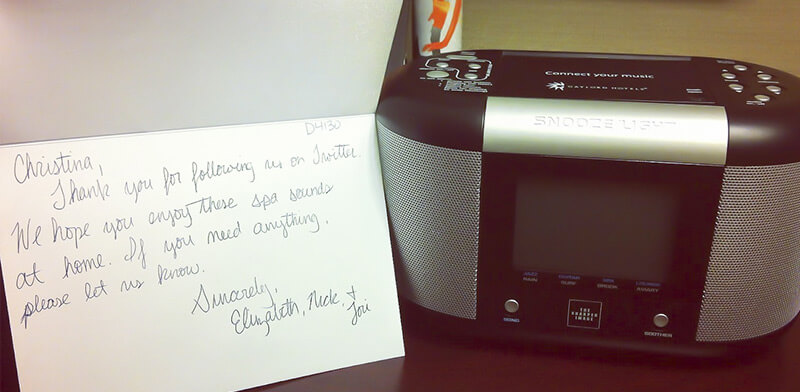 D4130
Christina,
Thank you for following us on Twitter.
We hope you enjoy these spa sounds
at home. If you need anything,
please let us know.
Sincerely,
Elizabeth, Nick, +
Lori
Connect your music
GAYLORD HOTELS
SNOOZE/LIGHT
RAIN SURF BROOK AVIARY
SONG
THE
SHARPER
IMAGE
SOOTHER